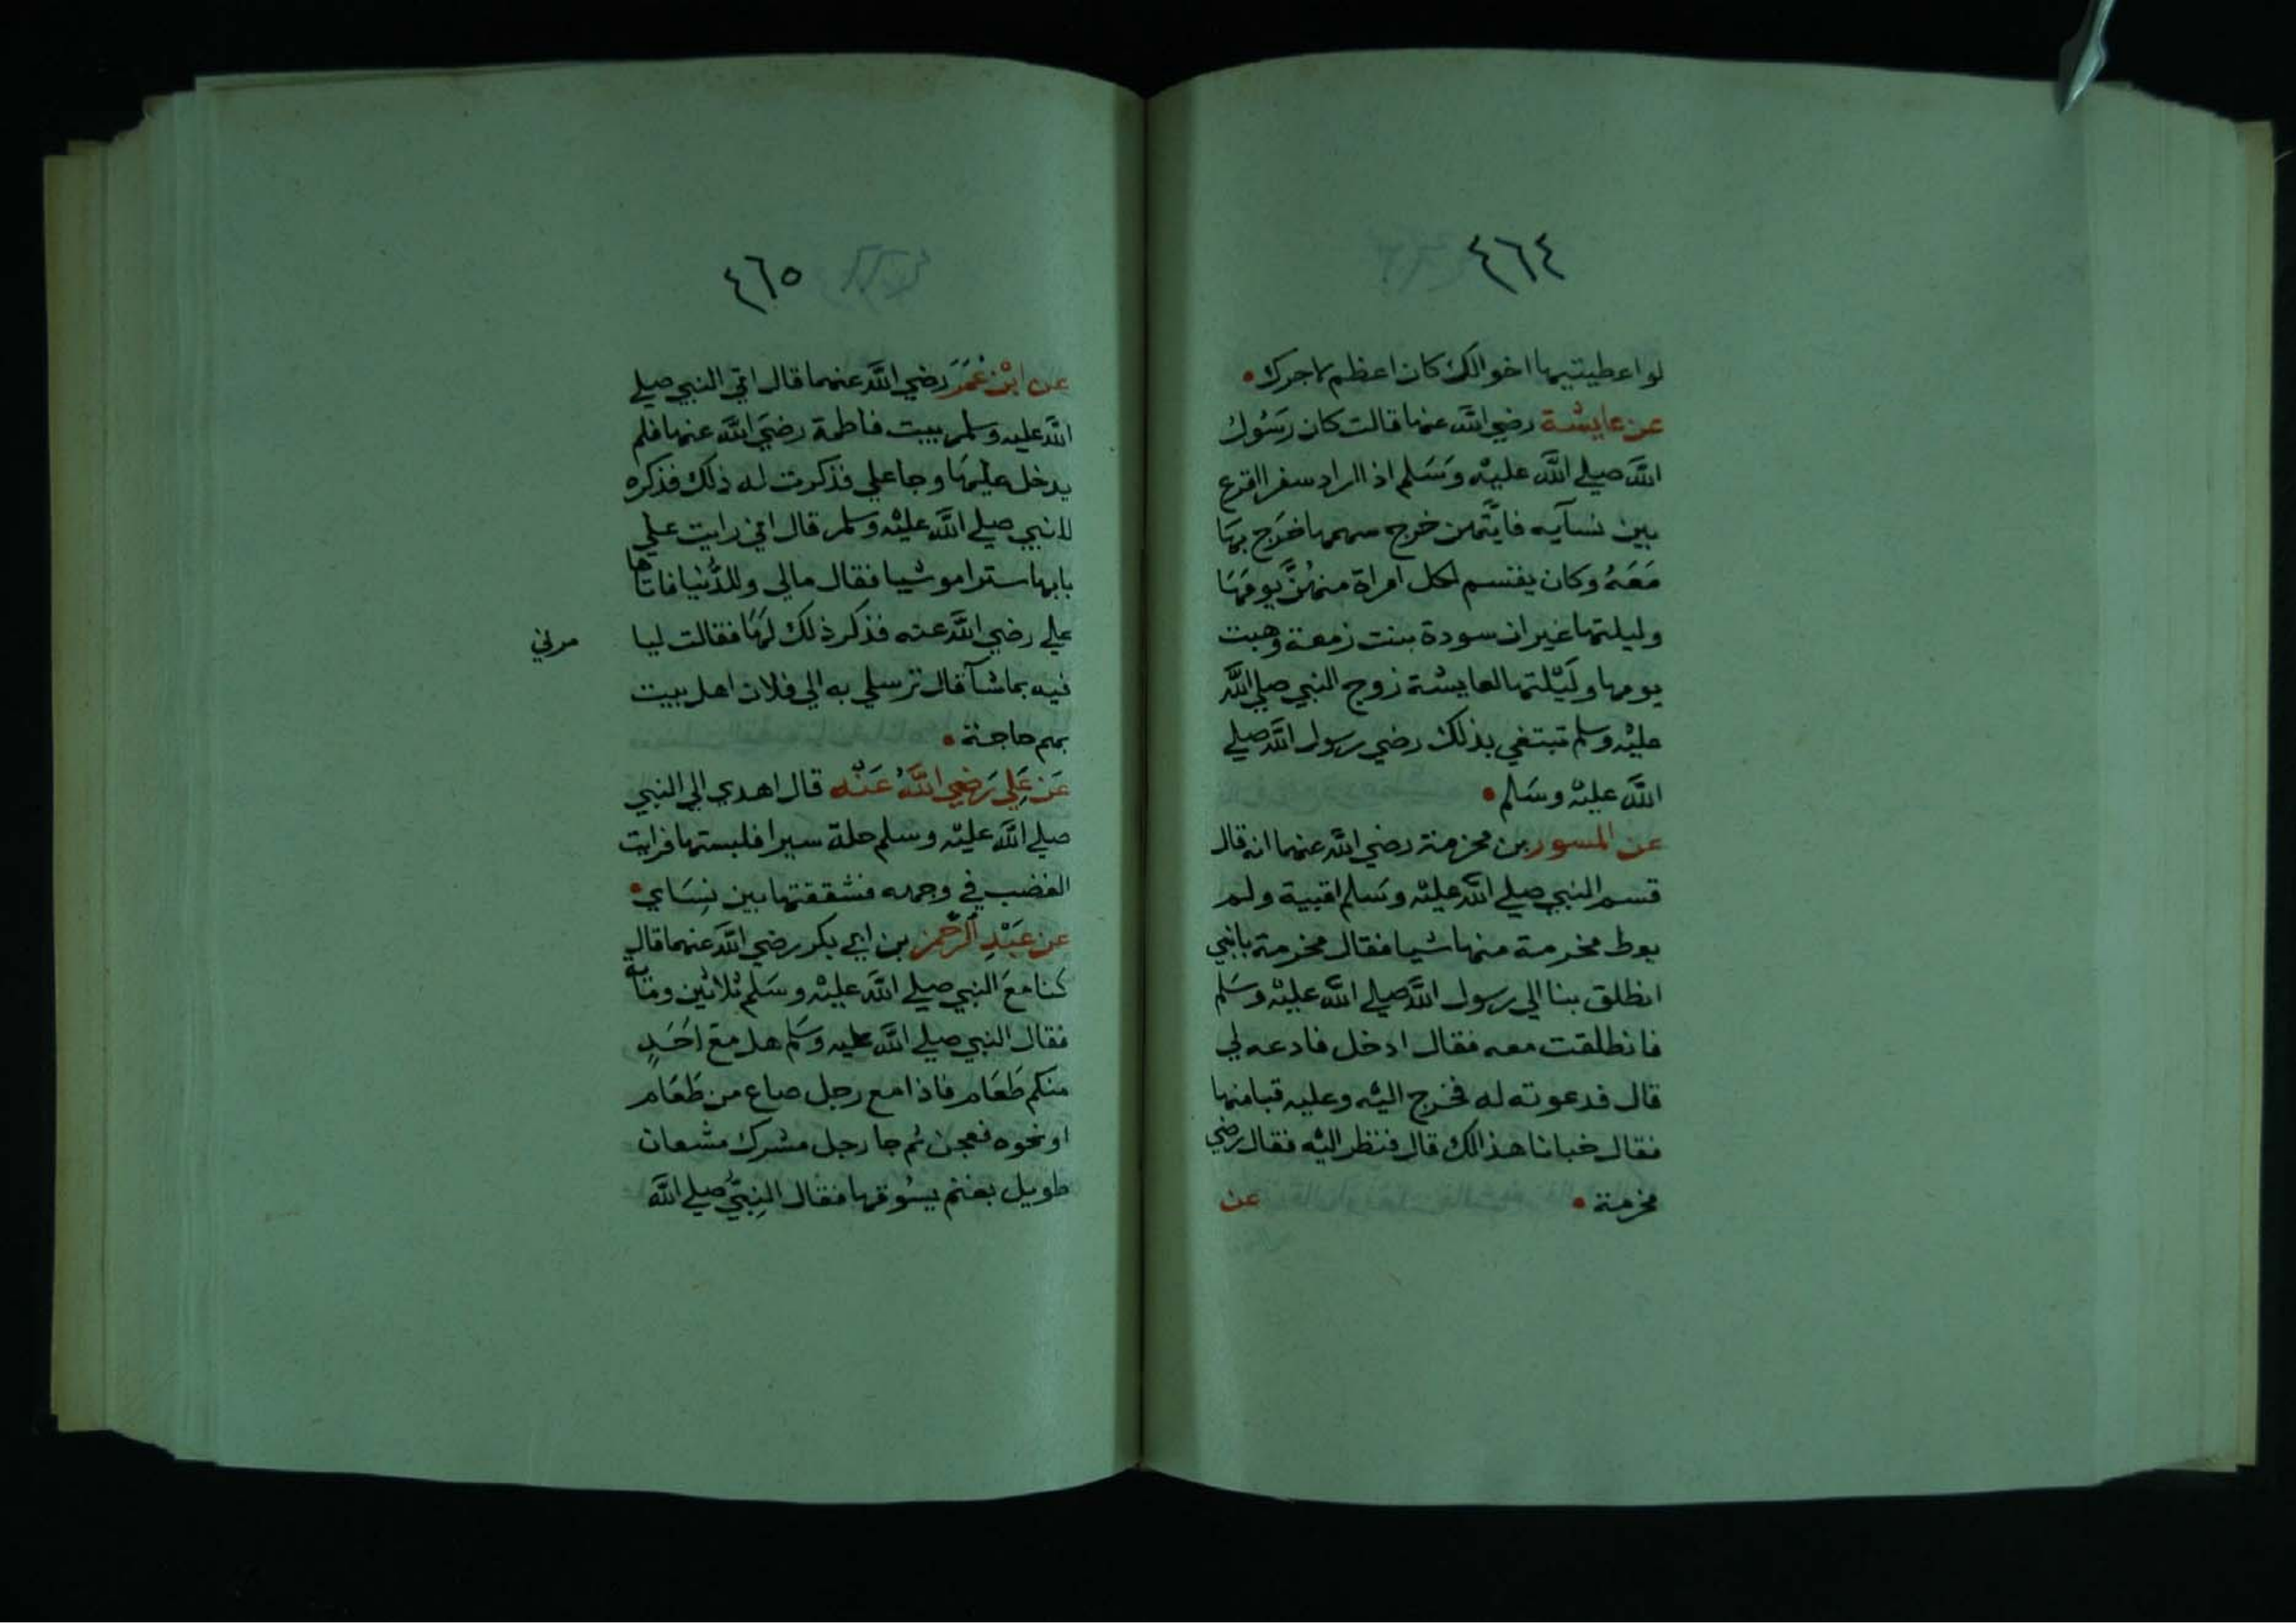 ٤٦٤
لو اعطيتيها اخوالك كان اعظم لاجرك
عن عايشة رضي الله عنها قالت كان رَسُول
الله صلى الله عليه وسَلم اذا اراد سفرا اقرع
بين نسآيه فايتهن خرج سهمها خرَج بهَا
مَعَهُ وكان يقسم لكل امراة منهُنَّ يومَهَا
وليلتها غير ان سودة بنت زمعة وهبت
يومها ولَيْلتها لعايشة زوج النبي صلى الله
عليْه وسلم تبتغي بذلك رضي رسول الله صلى
الله عليْه وسَلم
عن المسور بن مخرمة رضي الله عنهما انه قال
قسم النبي صلى الله عليْه وسَلم اقبية ولم
يعط مخرمة منها شيا فقال مخرمة يابني
انطلق بنا الي رسول الله صلى الله عليْه وسَلم
فانطلقت معه فقال ادخل فادعه لي
قال فدعوته له فخرج اليْه وعليه قبا منها
فقال خبانا هذا لك قال فنظر اليْه فقال رضي
مخرمة عن
٤٦٥
عن ابْن عُمَرَ رضي الله عنهما قال اتي النبي صلى
الله عليه وسلم بيت فاطمة رضيَ الله عنها فلم
يدخل عليهَا وجا علي فذكرت له ذلك فذكره
للنبي صلى الله عليْه وسلم قال اني رايت علي
بابها سترا موشيا فقال مالي وللدُّنيا فاتاها
علي رضي الله عنه فذكر ذلك لهَا فقالت ليا
مرني
فيه بما شآ قال ترسلي به الي فلان اهل بيت
بهم حاجة
عَن عَلِي رَضِي اللهُ عَنْه قال اهدي الي النبي
صلى الله عليْه وسلم حلة سيرا فلبستها فرايت
الغضب في وجهه فشققتها بين نِسَاي
عن عَبْدِ الرَّحمن بن ابي بكر رضي الله عنهما قال
كنا مَعَ النبي صلى الله عليْه وسَلم ثلاثين وماية
فقال النبي صلى الله عليه وسَلم هل مع اَحَدٍ
منكم طَعَام فاذا مع رجل صاع من طَعَام
او نحوه فعجن ثم جا رجل مشرك مشعان
طويل بغنم يسُوقها فقال النبيُّ صلى الله